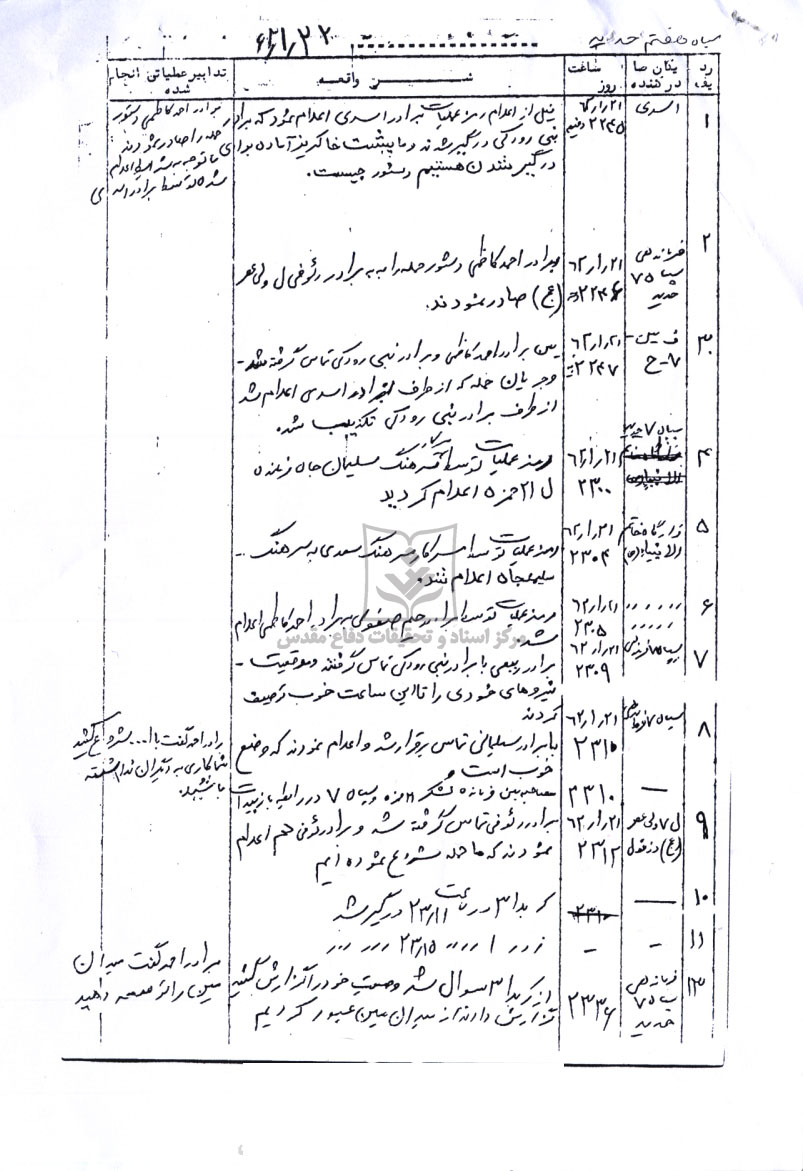 سپاه هفتم حدید
۶۲/۱/۲۲
رد یف
یگان ها در کننده
ساعت روز
شرح واقعه
تدابیر عملیاتی انجام شده
۱
اسدی
۲۱ر۱ر۶۲
۲۲۴۵ دقیقه
قبل از اعلام رمز عملیات برادر اسدی اعلام نمود که برادر
نبی رودکی درگیر شدند و ما پشت خاکریز آماده برای
درگیر شدن هستیم دستور چیست.
برادر احمد کاظمی دستور
حمله را صادر نمودند
با توجه به شرایط اعلام
شده توسط برادر اسدی
۲
فرماندهی
سپاه ۷
حدید
۲۱ر۱ر۶۲
۲۲۴۶
برادر احمد کاظمی دستور حمله را به برادر رئوفی ل ولی عصر
(عج) صادر نمودند.
۳
۷-ح
۲۱ر۱ر۶۲
۲۲۴۷
پس برادر احمد کاظمی و برادر نبی رودکی تماس گرفته شد -
و جریان حمله که از طرف برادر اسدی اعلام شد
از طرف برادر نبی رودکی تکذیب شد.
۴
سپاه ۷ حدید
۲۱ر۱ر۶۲
۲۳۰۰
رمز عملیات توسط سرهنگ سلیمان جاه فرمانده
ل ۲۱ حمزه اعلام گردید
۵
قرارگاه خاتم
الانبیاء (ص)
۲۱ر۱ر۶۲
۲۳۰۴
رمز عملیات توسط سرکار سرهنگ سعدی به سرهنگ -
سلیمانجاه اعلام شد.
۶
۲۱ر۱ر۶۲
۲۳۰۵
رمز عملیات توسط برادر رحیم صفوی به برادر احمد کاظمی اعلام
شد.
۷
سپاه ۷ فرماندهی
۲۱ر۱ر۶۲
۲۳۰۹
برادر ربیعی با برادر نبی رودکی تماس گرفتند و موقعیت -
نیروهای خودی را تا این ساعت خوب توصیف
کردند
۸
سپاه ۷ فرماندهی
۲۱ر۱ر۶۲
۲۳۱۰
با برادر سلیمانی تماس برقرار شد و اعلام نمودند که وضع
خوب است
برادر احمد گفت با ا... شروع کنید
شما کاری به دیگران نداشته
باشید.
—
۲۳۱۰
مصاحبه بین فرمانده لشکر حمزه و سپاه ۷ در رابطه با
۹
ل ۷ ولی عصر
(عج) دزفول
۲۱ر۱ر۶۲
۲۳۱۲
برادر رئوفی تماس گرفته شد و برادر رئوفی هم اعلام
نمودند که ما حمله شروع نموده ایم
۱۰
—
۲۳۱۰
کربلا ۳ در ساعت ۲۳٫۱۱ درگیر شد
۱۱
–
–
فجر ۱ ,, ,, ۲۳٫۱۵ ,, ,,
۱۲
فرماندهی
سپاه ۷
حدید
۲۳۳۶
از کربلا ۳ سوال شد وضعیت خود را گزارش کنید
گزارش دادند از میدان مین عبور کردیم
برادر احمد گفت میدان
مین را توسعه دهید
مرکز اسناد و تحقیقات دفاع مقدس